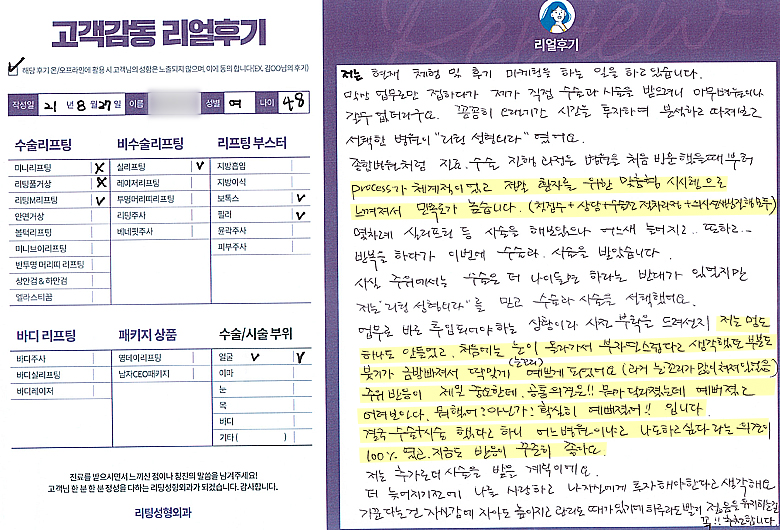 고객감동 리얼후기
해당 후기 온/오프라인에 활용 시 고객님의 성함은 노출되지 않으며, 이에 동의 합니다(EX. 김OO님의 후기)
작성일 21 년 8 월 27 일 이름 성별 여 나이 48
수술리프팅
미니리프팅 X
리팅풀거상 X
리팅M리프팅 V
안면거상
볼턱리프팅
미니브이리프팅
반투명 머리띠 리프팅
상안검 & 하안검
엘라스티꿈
비수술리프팅
실리프팅 V
레이저리프팅
투명머리띠리프팅
리팅주사
베네핏주사
리프팅 부스터
지방흡입
지방이식
보톡스 V
필러 V
윤곽주사
피부주사
바디 리프팅
바디주사
바디실리프팅
바디레이저
패키지 상품
영데이리프팅
남자CEO패키지
수술/시술 부위
얼굴 V V
이마
눈
목
바디
기타 ( )
진료를 받으시면서 느끼신 점이나 칭찬의 말씀을 남겨주세요!
고객님 한 분 한 분 정성을 다하는 리팅성형외과가 되겠습니다. 감사합니다.
리팅성형외과
Review
리얼후기
저는 현재 체험 및 후기 마케팅을 하는 일을 하고 있습니다.
막상 업무로만 접하다가 제가 직접 수술과 시술을 받으려니 아무병원이나
갈수 없더라구요. 꼼꼼히 오래기간 시간을 투자하며 분석하고 따져보고
선택한 병원이 "리팅 성형외과" 였어요.
종합병원처럼 진료. 수술 진행 과정은 병원을 처음 방문했을때부터
process가 체계적이었고 정말 환자를 위한 맞춤형 시스템으로
느껴져서 만족도가 높습니다. (첫접수 + 상담 + 수술전 절차과정 + 의사선생님진행 모두)
몇차례 실리프팅 등 시술을 해보았으나 어느새 늘어지고.. 또하고..
반복을 하다가 이번에 수술과. 시술을 받았습니다.
사실 주위에서는 수술은 더 나이들면 하라는 반대가 있었지만
저는 "리팅 성형외과"를 믿고 수술과 시술을 선택했어요.
업무로 바로 투입되어야 하는 상황이라 사전 부탁을 드려선지 저는 멍도
하나도 안들었고. 처음에는 눈이 옥자가서 부자연스럽다고 생각했던 부분도
붓기가 금방빠져서 딱있게 (눈꼬리) 예쁘게 되었어요 (과거 눈꼬리가 많이 처져있었음)
주위 반응이 제일 중요한데. 공통의견은!! 뭔가 달라졌는데 예뻐졌고
어려보인다. 뭐했어? 아닌가? 확실히 예뻐졌어!! 입니다.
결국 수술/시술 했다고 하니 어느병원이냐고 나도하고싶다 라는 의견이
100% 였고. 지금도 반응이 꾸준히 좋아요.
저는 추가로 더 시술을 받을 계획이에요.
더 늦어지기전에 나를 사랑하고 나자신에게 투자해야한다고 생각해요